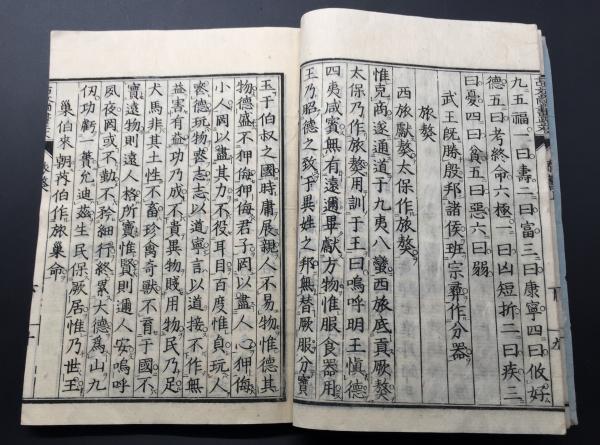 九五福一曰壽二曰富三曰康寧四曰攸好
德五曰考終命六極一曰凶短折二曰疾三
曰憂四曰貧五曰惡六曰弱
武王旣勝殷邦諸侯班宗彝作分器
旅獒
西旅獻獒太保作旅獒
惟克商遂通道于九夷八蠻西旅底貢厥獒
太保乃作旅獒用訓于王曰嗚呼明王愼德
四夷咸賓無有遠邇畢獻方物惟服食器用
王乃昭德之致于異姓之邦無替厥服分寶
玉于伯叔之國時庸展親人不易物惟德其
物德盛不狎侮狎侮君子罔以盡人心狎侮
小人罔以盡其力不役耳目百度惟貞玩人
喪德玩物喪志志以道寧言以道接不作無
益害有益功乃成不貴異物賤用物民乃足
犬馬非其土性不畜珍禽奇獸不育于國不
寶遠物則遠人格所寶惟賢則邇人安嗚呼
夙夜罔或不勤不矜細行終累大德爲山九
仞功虧一簣允迪茲生民保厥居惟乃世王
巢伯來朝芮伯作旅巢命